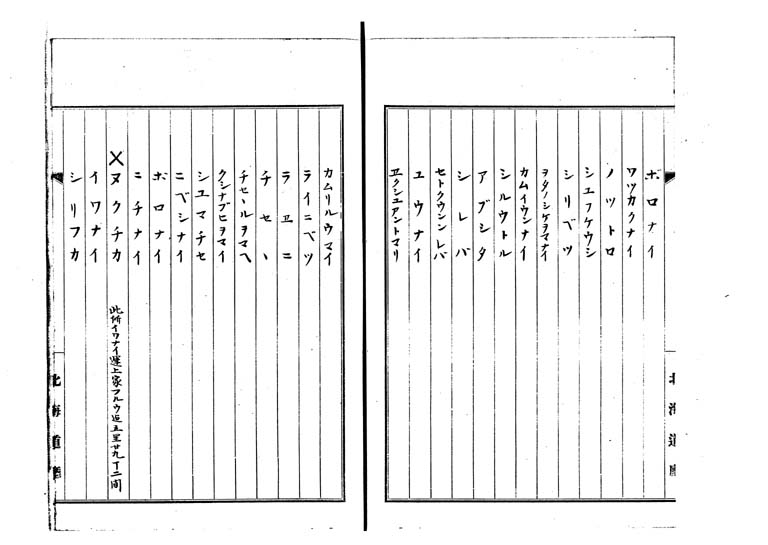 ボロナイ
ワツカクナイ
ノツトロ
シユフケウシ
シリベツ
ヲタノシケヲマナイ
カムイウンナイ
シルウトル
アブシタ
シレパ
セトクウンンレパ
ユウナイ
ヱクシユアントマリ
北海道廳
カムリルウマイ
ライニベツ
ラヱニ
チセヽ
チセヽルヲマヘ
クシナブヒヲマイ
シユマチセ
ニベシナイ
ボロナイ
ニチナイ
×ヌクチカ 此所イワナイ運上家フルウ迄五里廿九丁二間
イワナイ
シリフカ
北海道廳